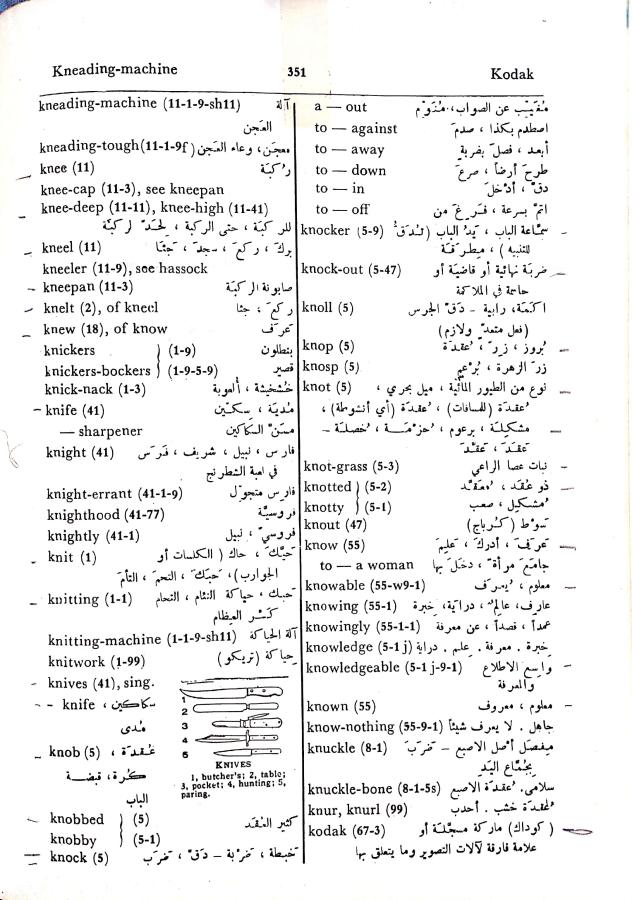 Kneading-machine 351 Kodak
kneading-machine (11-1-9-sh11) آلة
العجن
kneading-tough(11-1-9f) معجن، وعاء العجن
knee (11) ركبة
knee-cap (11-3), see kneepan
knee-deep (11-11), knee-high (11-41)
للركبة ، حتى الركبة ، لحد الركبة
kneel (11) برك ، ركع ، سجد ، جثا
kneeler (11-9), see hassock
kneepan (11-3) صابونة الركبة
knelt (2), of kneel ركع ، جثا
knew (18), of know عرف
knickers } (1-9) بنطلون
knickers-bockers } (1-9-5-9) قصير
knick-nack (1-3) خشخيشة ، ألعوبة
knife (41) مدية ، سكين
— sharpener مسن السكاكين
knight (41) فارس ، نبيل ، شريف ، فرس
في لعبة الشطرنج
knight-errant (41-1-9) فارس متجول
knighthood (41-77) فروسية
knightly (41-1) فروسي ، نبيل
knit (1) حبك ، حاك ( الكلسات أو
الجوارب) ، حبك ، التحم ، التأم
knitting (1-1) حبك ، حياكة التئام ، التحام
كسر العظام
knitting-machine (1-1-9-sh11) آلة الحياكة
knitwork (1-99) حياكة (تريكو)
knives (41), sing.
- knife ، سكاكين
مدى
knob (5) عقدة ،
كرة ، قبضة
الباب
1
2
3
4
5
KNIVES
1, butcher's; 2, table;
3, pocket; 4, hunting; 5,
paring.
knobbed } (5) كثير العقد
knobby } (5-1)
knock (5) خبطة ، ضربة - دق ، ضرب
a — out مغيب عن الصواب،
to — against اصطدم بكذا ، صدم
to — away أبعد ، فصل بضربة
to — down طرح أرضا ، صرع
to — in دق ، أدخل
to — off اتم بسرعة ، فرغ من
knocker (5-9) سماعة الباب ، يد الباب (تدق
للتنبيه) ، مطرقة
knock-out (5-47) ضربة نهائية أو قاضية أو
حاسمة في الملاكمة
knoll (5) اكمة، رابية - دق الجرس
(فعل متعد ولازم)
knop (5) بروز ، زر ، عقدة
knosp (5) زر الزهرة ، برعم
knot (5) نوع من الطيور المائية ، ميل بحري ،
عقدة (للمسافات) ، عقدة (أي أنشوطة) ،
مشكلة ، برعوم ، حزمة ، خصلة -
عقد ، عقد
knot-grass (5-3) نبات عصا الراعي
knotted } (5-2) ذو عقد ، معقد
knotty } (5-1) مشكل ، صعب
knout (47) سوط (كرباج)
know (55) عرف ، أدرك ، علم
to — a woman جامع مرأة ، دخل بها
knowable (55-w9-1) معلوم ، يعرف
knowing (55-1) عارف، عالم ، دراية، خبرة
knowingly (55-1-1) عمدا ، قصدا ، عن معرفة
knowledge (5-1 j) خبرة . معرفة . علم . دراية
knowledgeable (5-1 j-9-1) واسع الاطلاع
والمعرفة
known (55) معلوم ، معروف
know-nothing (55-9-1) جاهل . لا يعرف شيئا
knuckle (8-1) مفصل أصل الاصبع - ضرب
بجماع اليد
knuckle-bone (8-1-5s) سلامى. عقدة الاصبع
knur, knurl (99) عقدة خشب . أحدب
kodak (67-3) ( كوداك) ماركة مسجلة أو
علامة فارقة لآلات التصوير وما يتعلق بها